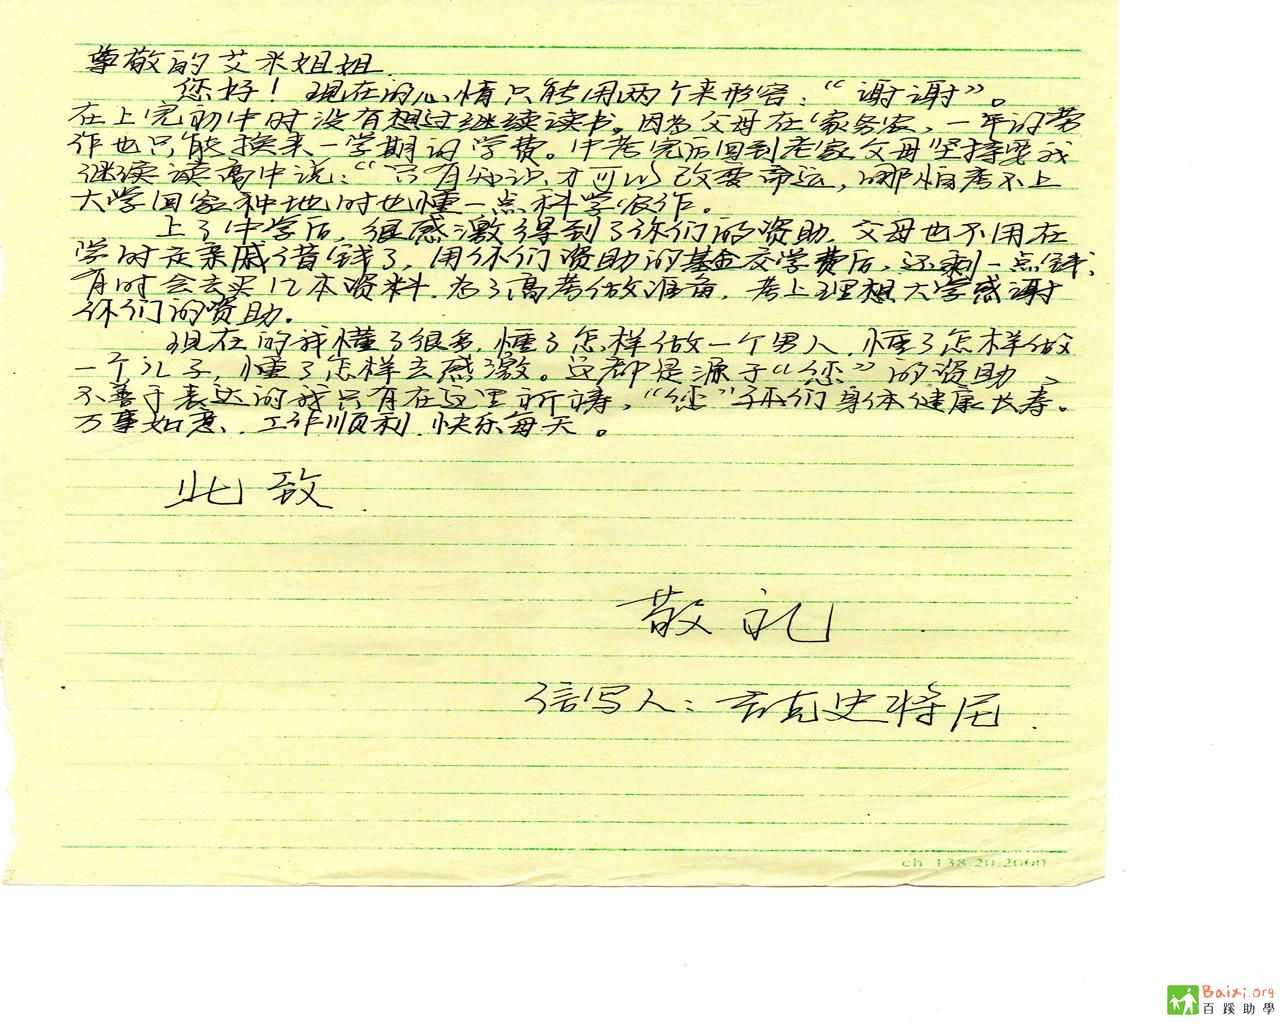 尊敬的艾米姐姐
您好！现在的心情只能用两个来形容：“谢谢”。
在上完初中时没有想过继续读书。因为父母在家务农，一年的劳
作也只能换来一学期的学费。中考完后回到老家父母坚持要我
继续读高中说：“只有知识，才可以改变命运，哪怕考不上
大学回家种地时也懂一点科学农作。
上了中学后，很感激得到了你们的资助，父母也不用在
学时走亲戚借钱了，用你们资助的基金交学费后，还剩一点钱，
有时会去买几本资料，为了高考做准备，考上理想大学感谢
你们的资助。
现在的我懂了很多，懂了怎样做一个男人，懂了怎样做
一个儿子，懂了怎样去感激。这都是源于“您”的资助、
不善于表达的我只有在这里祈祷，“您”们身体健康长寿。
万事如意、工作顺利、快乐每天。
此致
敬礼
信写人：吉克史将尼
ch 138.20.2060
Baixi.org
百蹊助學